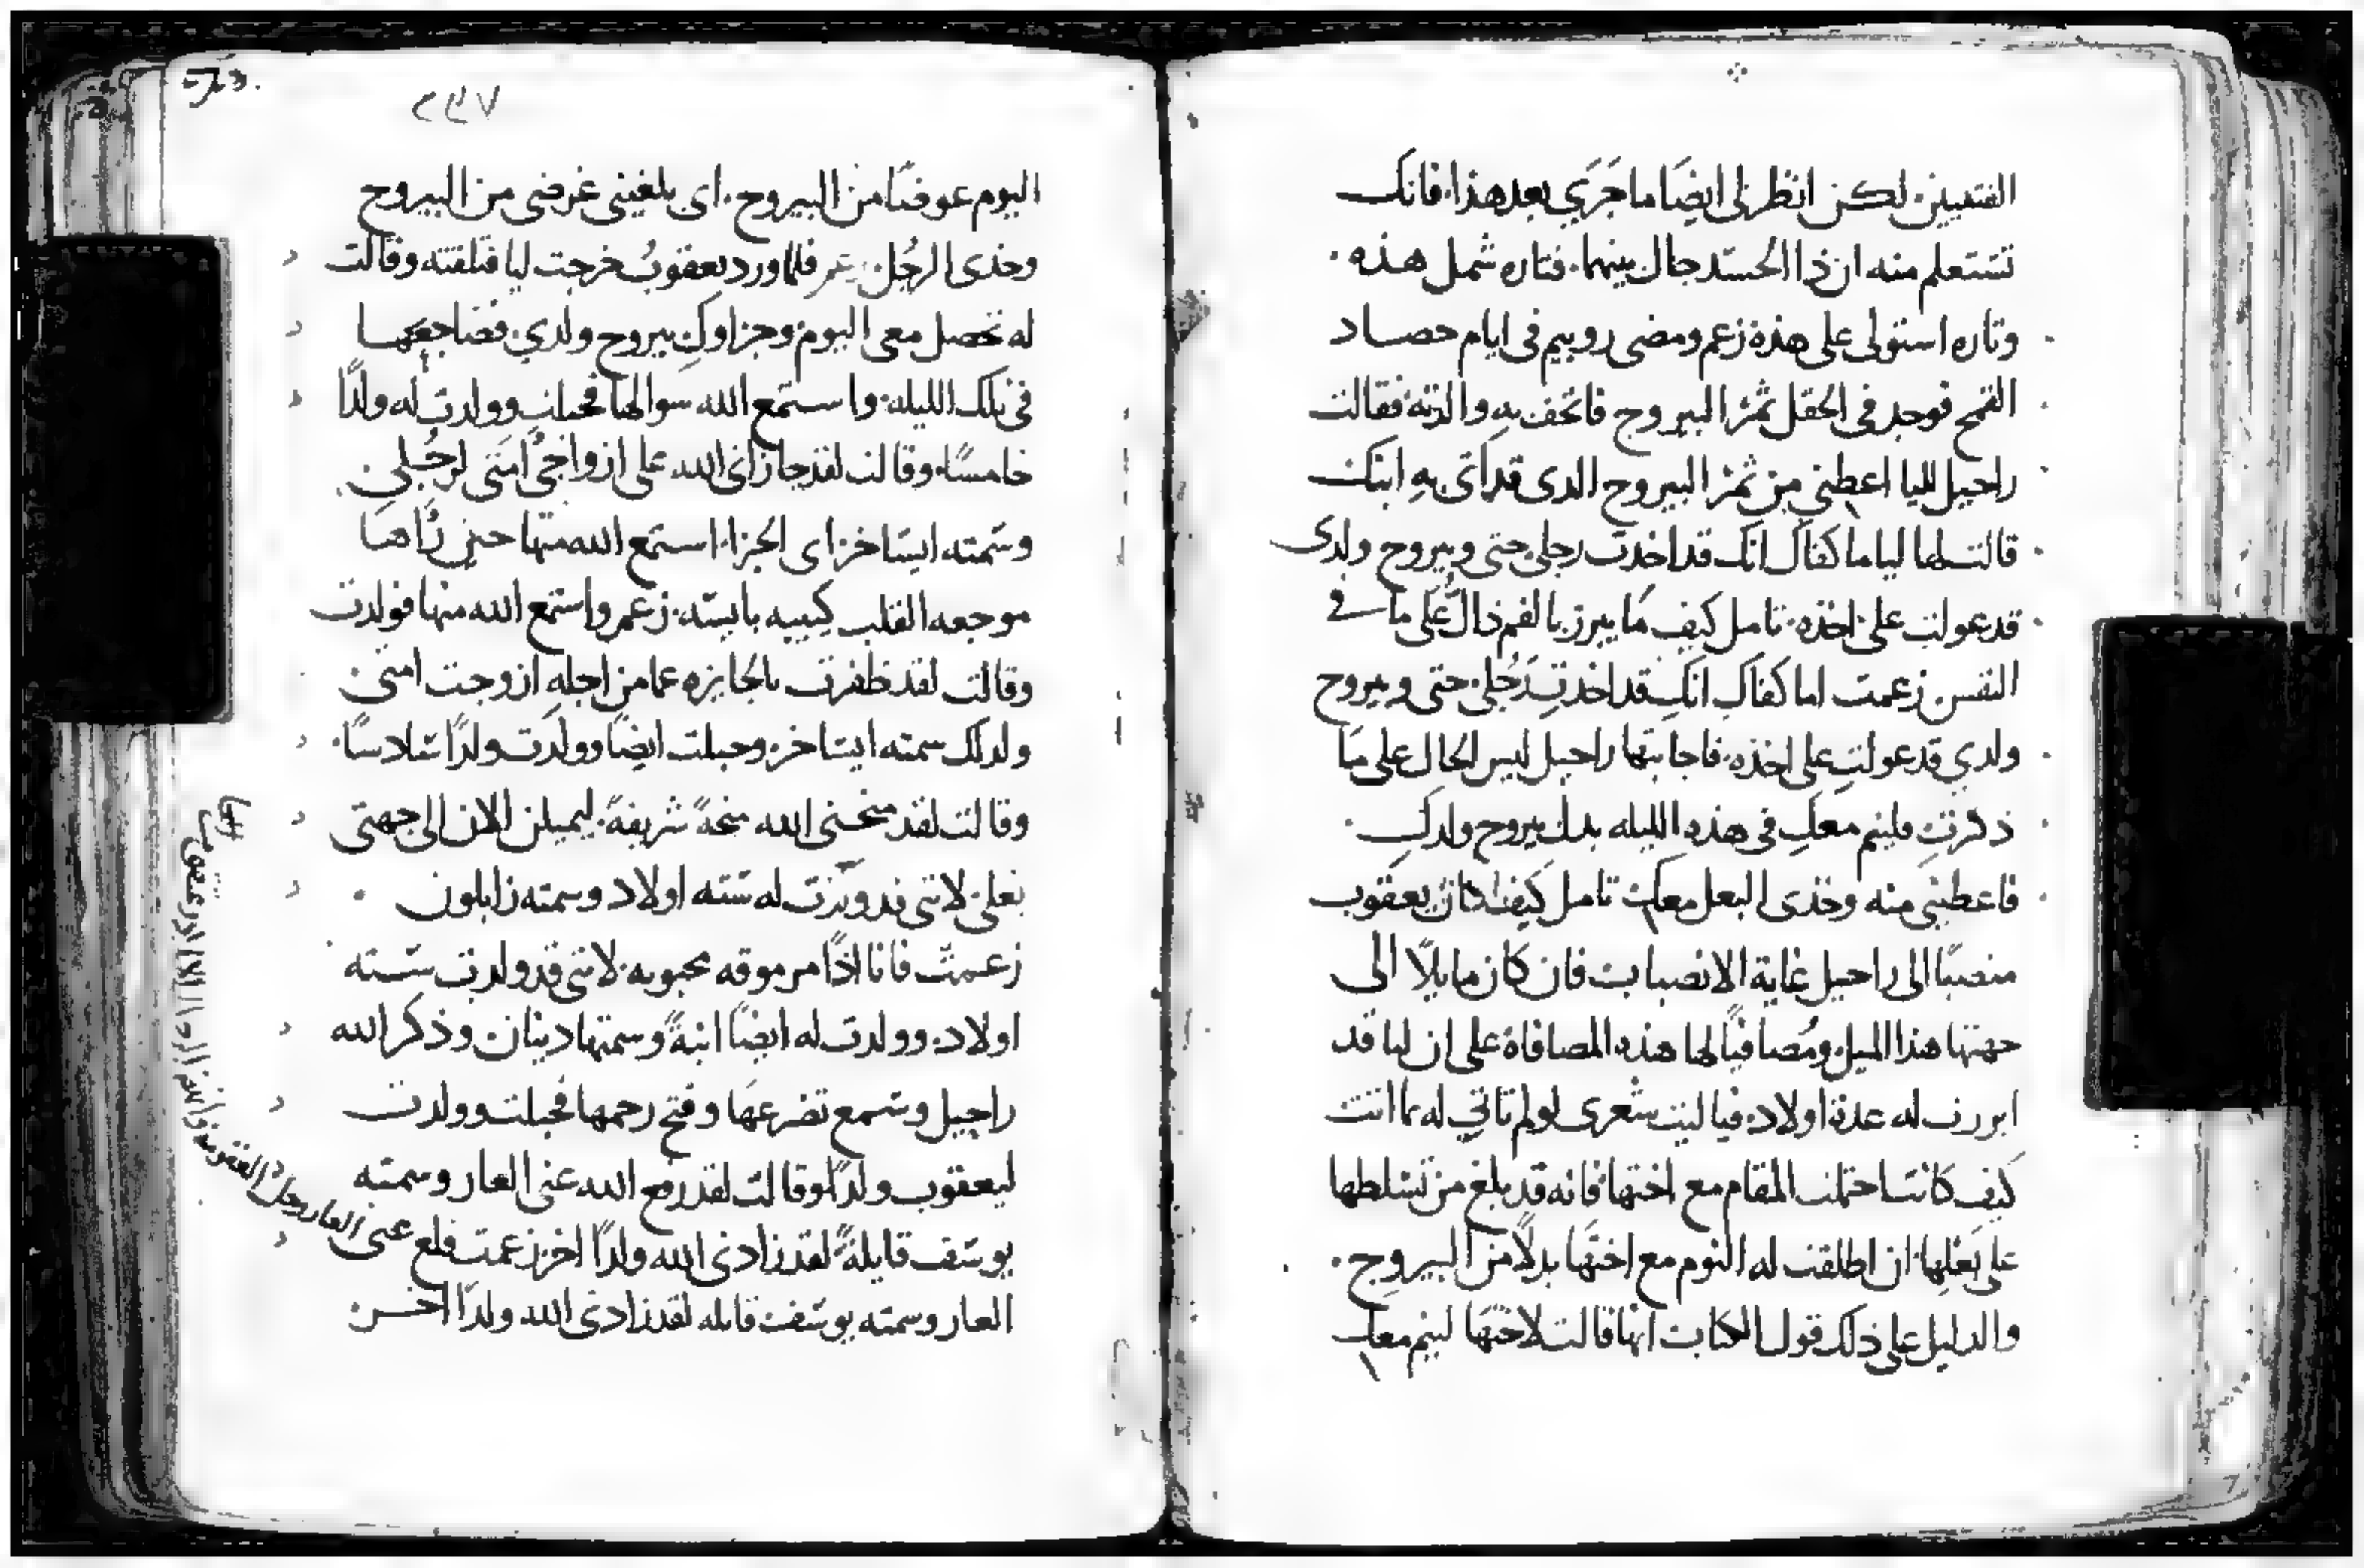 الفتيين لكن انظر لى ايضًا ما جَرَي بعد هذا. فانك
تستعلم منه ان ذا الحسد جال بينهما. فتاره شمل هذه.
وتاره استولى على هذه زعم ومضى روبيم فى ايام حصاد
القمح فوجد فى الحقل ثمر اليبروح فاتحف به والدته فقالت
راحيل لليا اعطيني من ثمر اليبروح الدى قد اتى بهِ ابنك
قالت لها ليا ما كفاك انك قد اخدت رجلى حتى ويبروح ولدى
قد عولت على اخذه. تامل كيف ما يبرز بالفم دالٌ على ما فى
النفس زعمت اما كفاكِ انكِ قد اخدتِ رَجُلي حتى ويبروح
ولدي قد عولتِ على اخذه. فاجابتها راحيل ليس الحال على ما
ذكرتِ فلينم معكِ فى هذه الليله بدل يبروح ولدكِ.
فاعطينى منه وخذى البعل معك تامل كيف كان يعقوب
منصبًا الى راحيل غاية الانصباب فان كان مايلاً الى
جهتها هذا الميل ومُصافيًا لها هذه المصافاة على ان ليا قد
ابررت له عدة اولاد. فيا ليت شعرى لو لم تاتي له بما اتت
كيف كانت احتملت المقام مع اختها فانه قد بلغ من تسلطها
على بَعْلِها. ان اطلقت له النوم مع اختها بدلاً من اليبروح.
والدليل على ذلك قول الكتاب انها قالت لاختها لينم معك
٢٤٧
اليوم عوضًا من اليبروح. اى بلغينى غرضى من اليبروح
وخذى الرجُل زعم فلما ورد يعقوبُ خرجت ليا فتلقته وقالت
له تحصل معى اليوم وجزاوكِ يبروح ولدي. فضاجعها
فى تلك الليله. واستمع الله سوالها فحبلت وولدت له ولدًا
خامسًا. وقالت لقد جازانى الله على ازواجي امَتى لرجُلي
وسمته ايساخر اى الجزا. استمع الله منها حين رُاها
موجعه القلب كييبه بايسه. زعم واستمع الله منها فولدت
وقالت لقد ظفرت بالجايزه عما من اجله ازوجت امتى
ولدلك سمته ايساخر. وحبلت ايضًا وولدت ولدًا سادسًا.
وقالت لقد منحنى الله منحةً شريفةً. ليميلن الان الى جهتى
بعلى. لاننى قد ولدت له سته اولاد وسمته زابلون
زعمت فانا اذًا مرموقه محبوبه. لاننى قد ولدت سته
اولاد. وولدت له ايضًا ابنةً وسمتها دينا. ن وذكر الله
راحيل وسمع تضرعها وفتح رحمها فحبلت وولدت
ليعقوب ولدًا وقالت لقد رفع الله عنى العار وسمته
يوسف قايلةً لقد زادنى الله ولدًا اخر. زعمت قلع عنى العار
العار وسمته يوسف قايله لقد زادنى الله ولدًا اخر